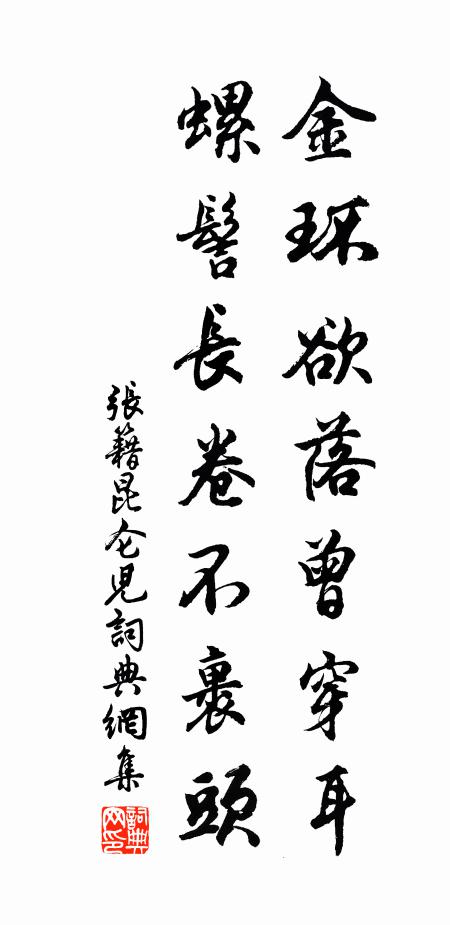 金环欲落曾穿耳
螺髻長卷不裹頭
張籍昆仑児詞典網集
詞典网印